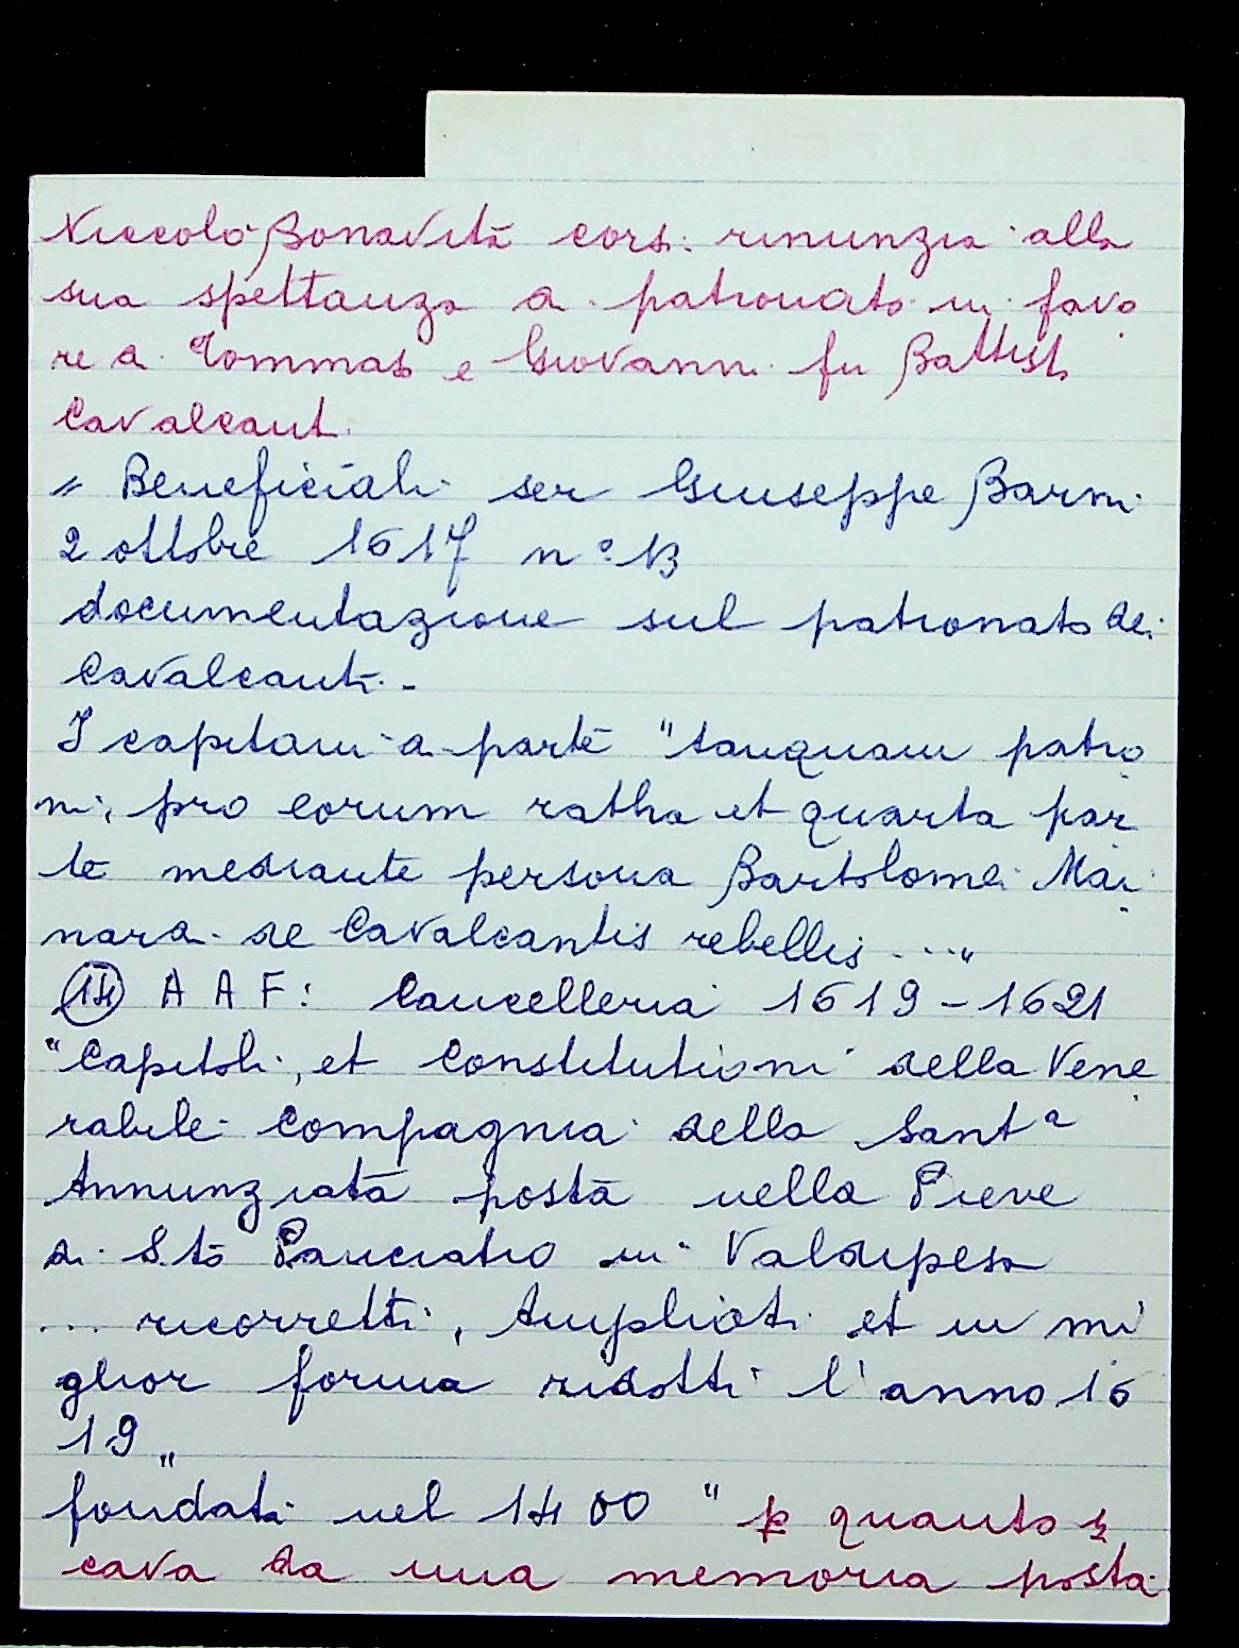 Niccolò Bonavità cors. rinunzia alla
sua spettanza di patronato in favo
re di Tommaso e Giovanni fu Battista
Cavalcanti.
" Beneficiali ser Giuseppe Barni
2 ottobre 1617 n° 13
documentazione sul patronato dei
Cavalcanti. -
I capitani di parte "tanquam patro
ni, pro eorum ratha et quarta par
te mediante persona Bartolomei Mai
nardi de Cavalcantis rebellis ..."
(14) A A F: Cancelleria 1619 - 1621
"Capitoli, et Constitutioni della Vene
rabile Compagnia della Santa
Annunziata posta nella Pieve
di S.to Pancratio in Valdipesa
... ricorretti, Ampliati et in mi
glior forma ridotti l'anno 16
19"
fondata nel 1400 " p quanto si
cava da una memoria posta